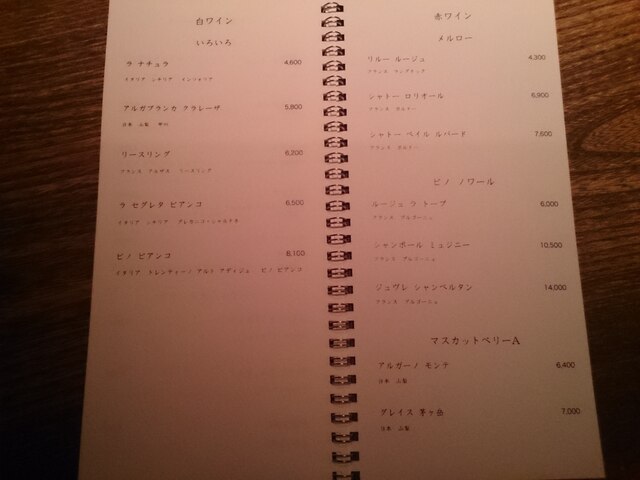 白ワイン
いろいろ
ラ ナチュラ 4,600
イタリア シチリア インツォリア
アルガブランカ クラレーザ 5,800
日本 山梨 甲州
リースリング 6,200
フランス アルザス リースリング
ラ セグレタ ビアンコ 6,500
イタリア シチリア グレカニコ・シャルドネ
ピノ ビアンコ 8,100
イタリア トレンティーノ アルト アディジェ ピノ ビアンコ
赤ワイン
メルロー
リルー ルージュ 4,300
フランス ラングドック
シャトー ロリオール 6,900
フランス ボルドー
シャトー ベイル ルバード 7,600
フランス ボルドー
ピノ ノワール
ルージュ ラ トープ 6,000
フランス ブルゴーニュ
シャンボール ミュジニー 10,500
フランス ブルゴーニュ
ジュヴレ シャンベルタン 14,000
フランス ブルゴーニュ
マスカットベリーA
アルガーノ モンテ 6,400
日本 山梨
グレイス 茅ヶ岳 7,000
日本 山梨